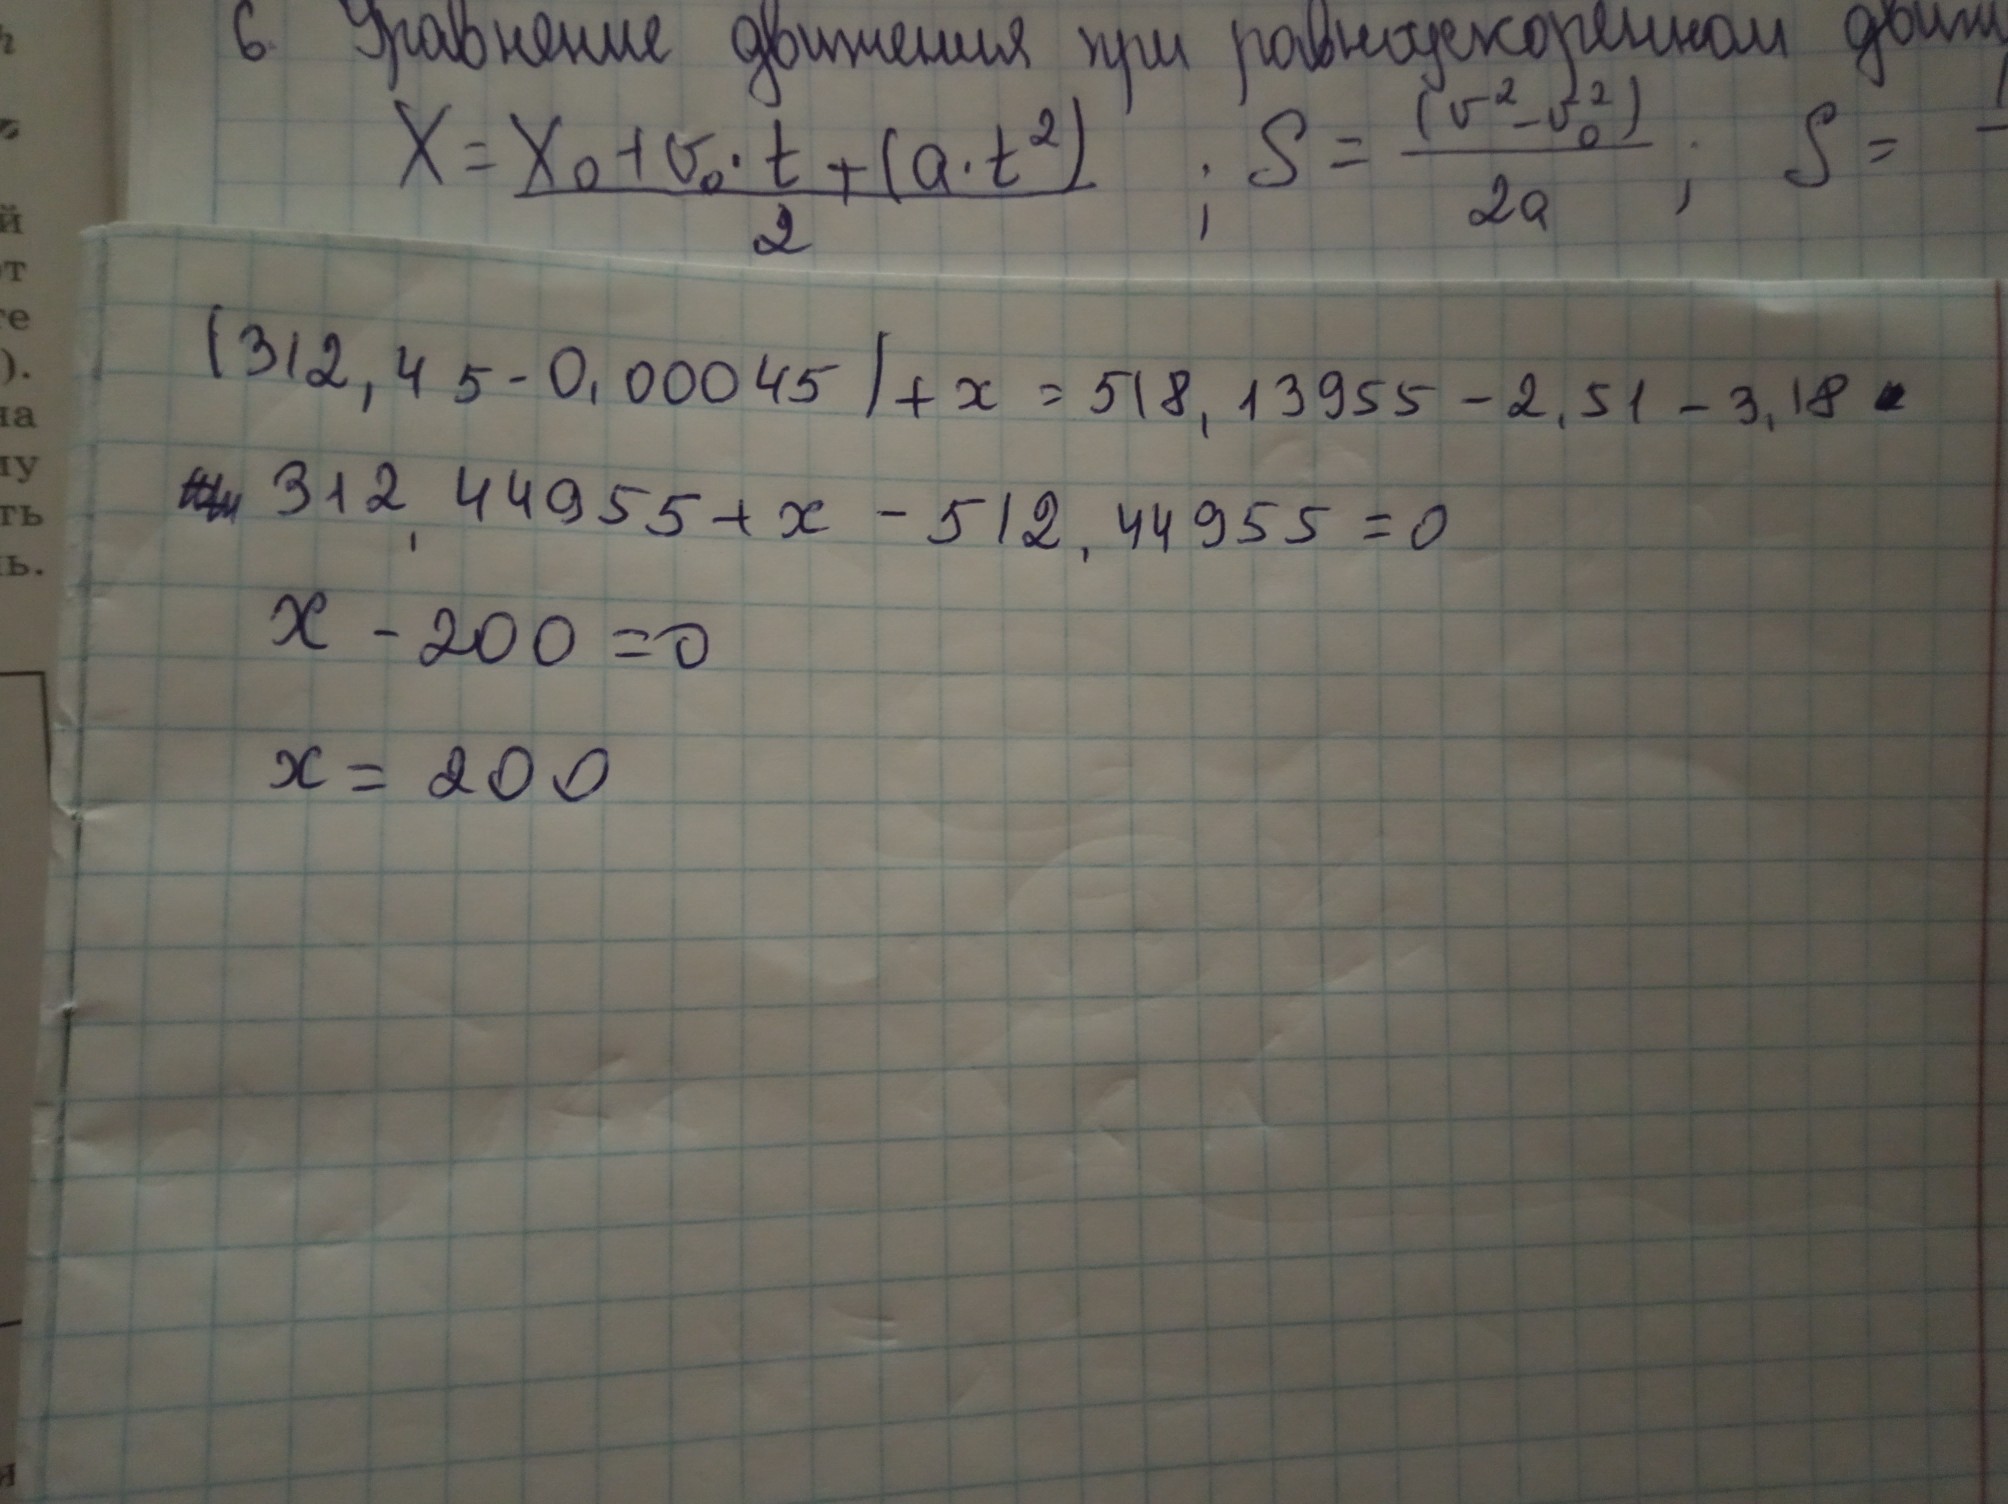 6. Уравнение движения при равноускоренном движ
X = X₀ + v₀ · t + (a · t²) / 2 ; S = (v² - v₀²) / 2a ; S =
(312,45 - 0,00045) + x = 518,13955 - 2,51 - 3,18
312,44955 + x - 512,44955 = 0
x - 200 = 0
x = 200
й
от
те
).
на
му
ть
ь.